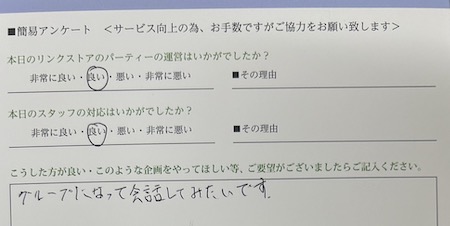 ■簡易アンケート ＜サービス向上の為、お手数ですがご協力をお願い致します＞
本日のリンクストアのパーティーの運営はいかがでしたか？
非常に良い・良い・悪い・非常に悪い ■その理由
本日のスタッフの対応はいかがでしたか？
非常に良い・良い・悪い・非常に悪い ■その理由
こうした方が良い・このような企画をやってほしい等、ご要望がございましたらご記入ください。
グループになって会話してみたいです.